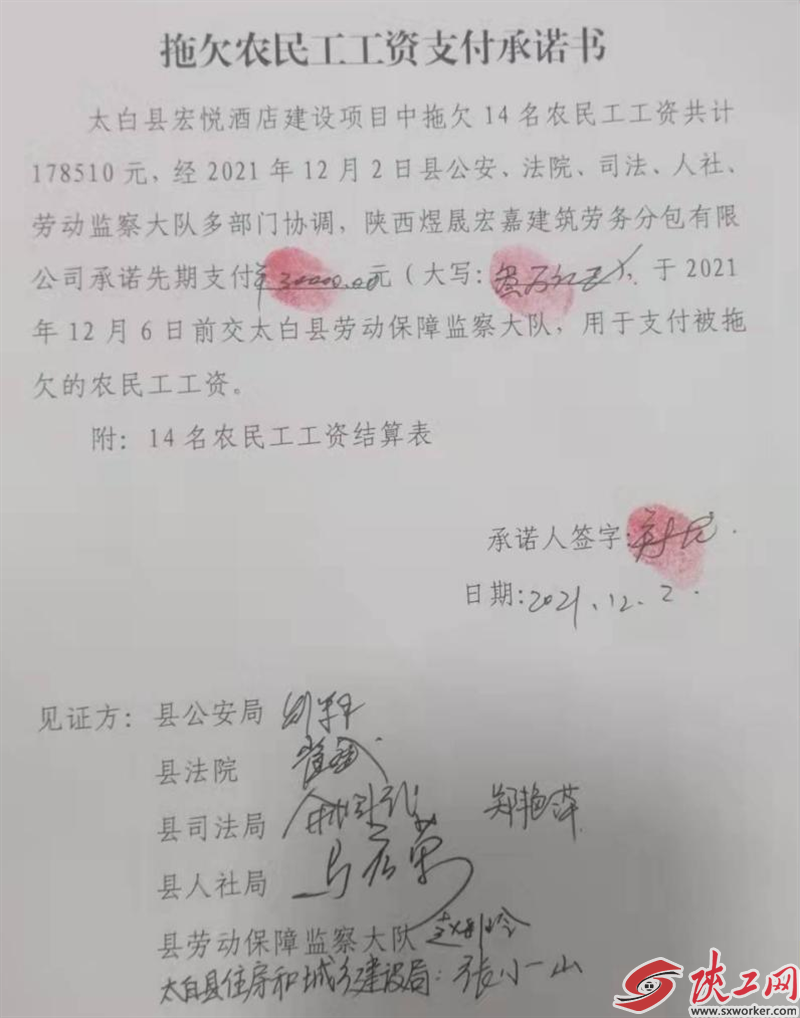 拖欠农民工工资支付承诺书
太白县宏悦酒店建设项目中拖欠14名农民工工资共计
178510元，经2021年12月2日县公安、法院、司法、人社、
劳动监察大队多部门协调，陕西煜晟宏嘉建筑劳务分包有限
公司承诺先期支付¥30000.00元（大写：叁万元），于2021
年12月6日前交太白县劳动保障监察大队，用于支付被拖
欠的农民工工资。
附：14名农民工工资结算表
承诺人签字：
日期：2021.12.2.
见证方：县公安局
县法院
县司法局 郑艳萍
县人社局
县劳动保障监察大队
太白县住房和城乡建设局：张小山
陕工网
www.sxworker.com